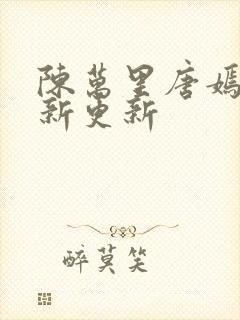 陳萬里唐嫣
新更新
醉莫笑